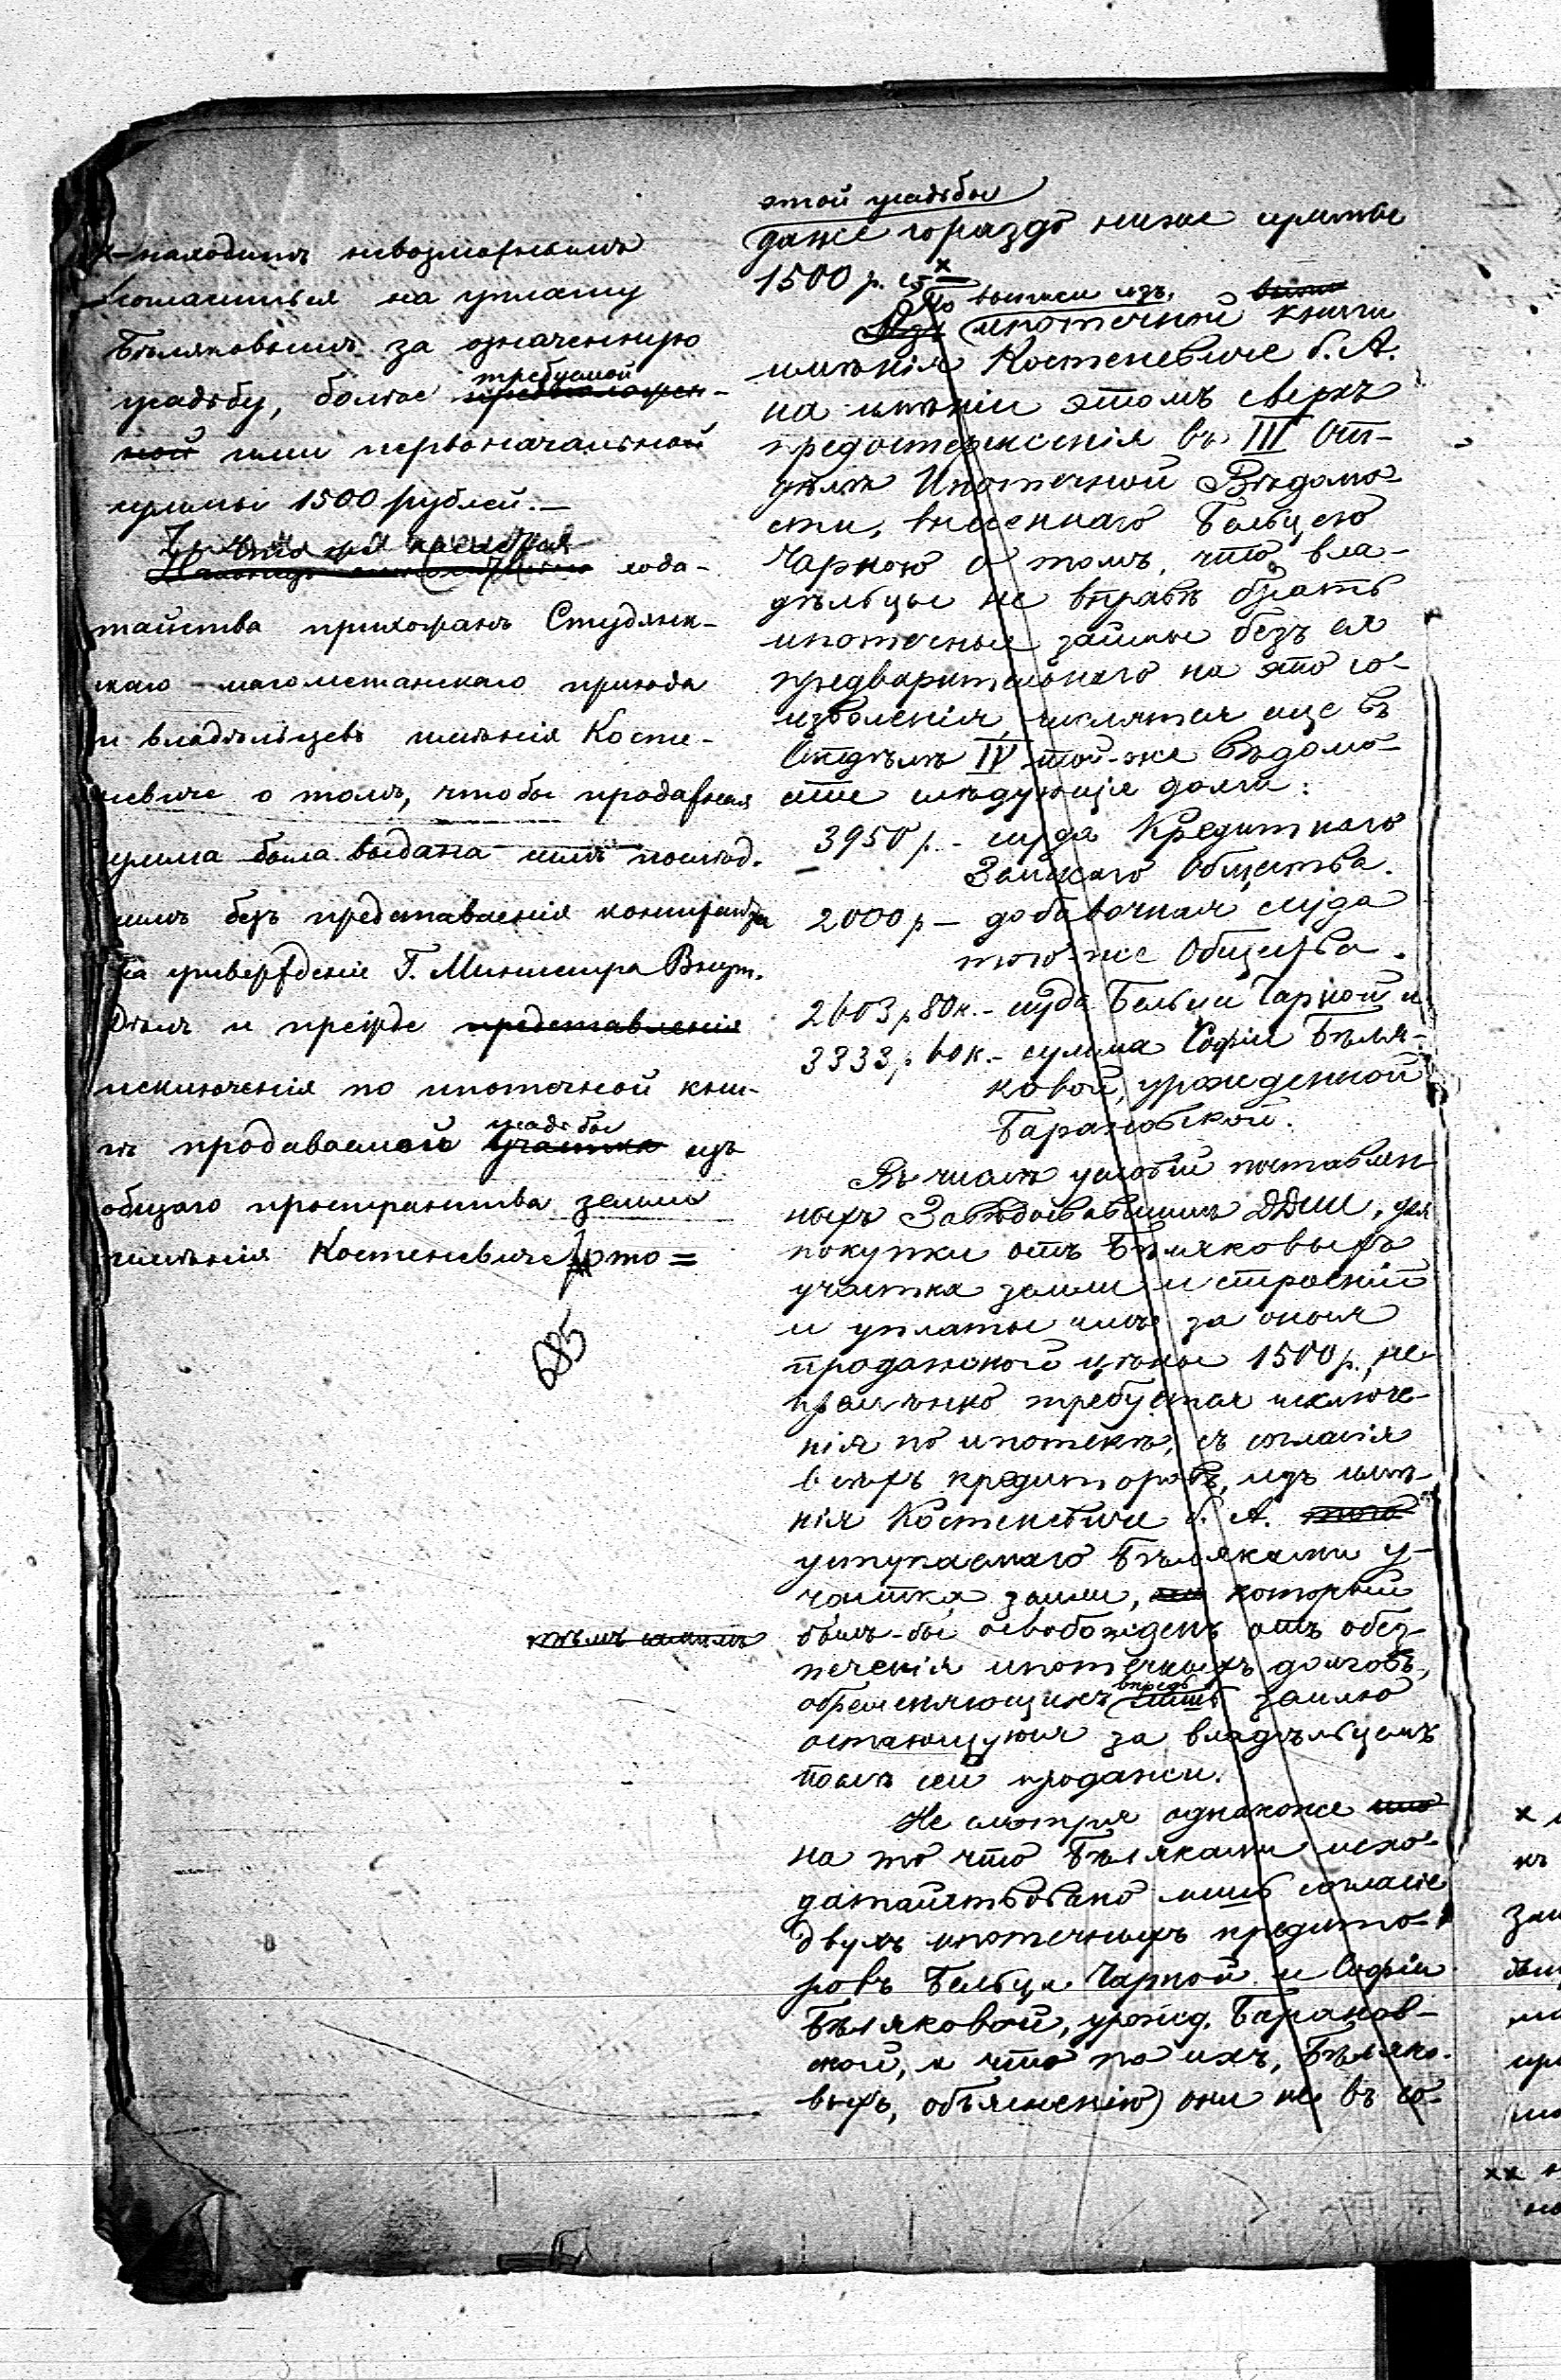 х находитъ невозможнымъ
согласиться на уплату
Бѣляковымъ за означенную
усадьбу, болѣе требуемой
предположен-
ной ими первоначальной
суммы 1500 рублей. —
Что
хода-
тайства прихожанъ Студянк-
скаго магометанскаго прихода
и владѣльцевъ имѣнія Косте-
невиче о томъ, чтобы продажная
сумма была выдана имъ послѣд-
нимъ безъ представленія контракта
на утвержденіе Г. Министра Внут.
Дѣлъ и прежде представленія
исключенія по ипотечной кни-
гѣ продаваемой усадьбы
участка изъ
общаго пространства земли
имѣнія Костеневиче, то =
685
этой усадьбы
даже гораздо ниже суммы
1500 р. с. х
По выписи изъ
Изъ ипотечной книги
имѣнія Костеневиче б. А.
на имѣніи этомъ сверхъ
предостереженія въ III От-
дѣлѣ Ипотечной Вѣдомо-
сти, внесеннаго Бельцею
Чарною о томъ, что вла-
дѣльцы не вправѣ брать
ипотечные займы безъ ея
предварительнаго на это со-
изволенія, числятся еще въ
Отдѣлѣ IV той-же Вѣдомо-
сти слѣдующіе долги:
3950 р. - ссуда Кредитнаго
Земскаго Общества.
2000 р — добавочная ссуда
того-же Общества.
2603 р 80 к. - ссуда Бельци Чарной и
3333 р. 60 к. - сумма Софіи Бѣля-
ковой, урожденной
Барановской.
Въ числѣ условій поставлен-
ныхъ Завѣдывавшимъ ДДИИ, для
покупки отъ Бѣляковыхъ
участка земли и строеній
и уплаты имъ за оныя
продажной цѣны 1500 р., не-
премѣнно требуется исключе-
нія по ипотекѣ, съ согласія
всѣхъ кредиторовъ, изъ имѣ-
нія Костеневиче б. А. того
уступаемаго Бѣляками у-
частка земли, который
былъ-бы освобожденъ отъ обез-
печенія ипотечныхъ долговъ,
обременяющихъ впредь
лишь землю
остающуюся за владѣльцемъ
послѣ сей продажи.
Не смотря однакоже
на то что Бѣляками исхо-
датайствовано лишь согласіе
двухъ ипотечныхъ кредито-
ровъ Бельци Чарной и Софіи
Бѣляковой, урожд. Баранов-
ской, и что по ихъ, Бѣляко-
выхъ, объясненію) они не въ со-